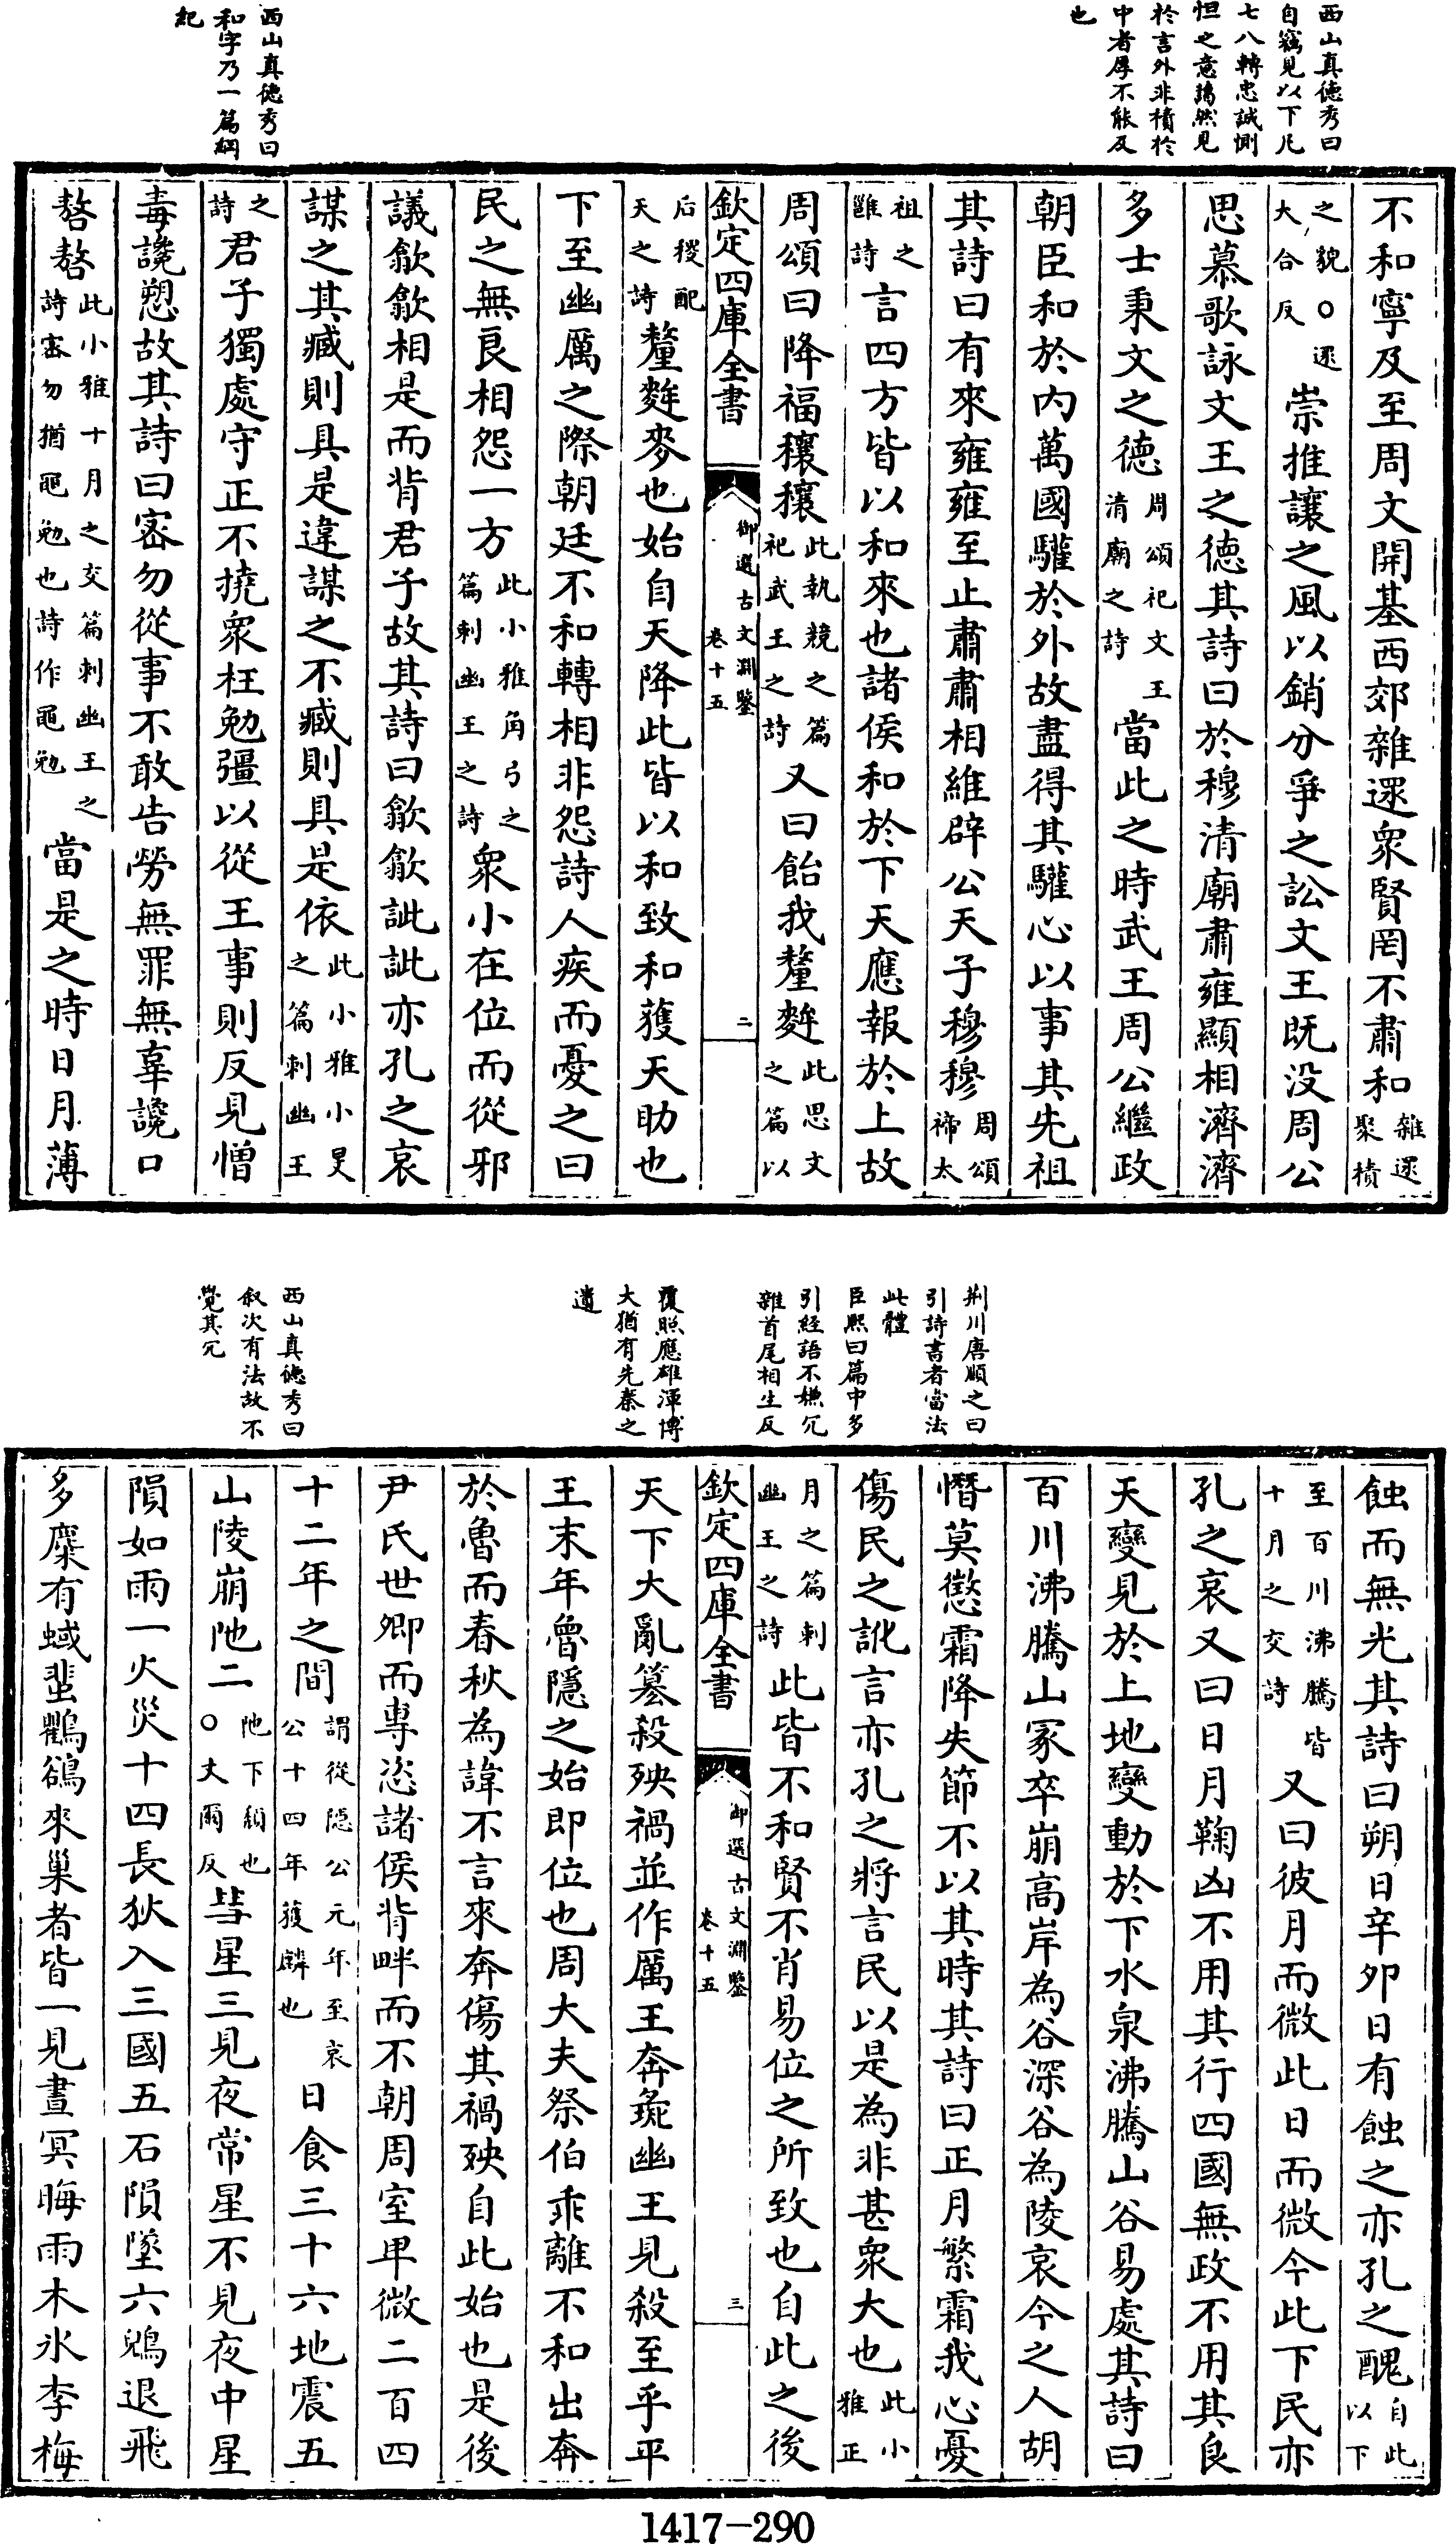 西山真德秀曰
自竊見以下凡
七八轉忠誠惻
怛之意藹然見
於言外非積於
中者厚不能及
也
西山真德秀曰
和字乃一篇綱
紀
不和寧及至周文開基西郊雜遝衆賢罔不肅和雜遝聚積
之貌○遝大合反崇推讓之風以銷分爭之訟文王既沒周公
思慕歌詠文王之德其詩曰於穆清廟肅雍顯相濟濟
多士秉文之德周頌祀文王清廟之詩當此之時武王周公繼政
朝臣和於內萬國驩於外故盡得其驩心以事其先祖
其詩曰有來雍雍至止肅肅相維辟公天子穆穆周頌禘太
祖之雝詩言四方皆以和來也諸侯和於下天應報於上故
周頌曰降福穰穰此執競之篇祀武王之詩又曰飴我釐麰此思文之篇以
欽定四庫全書
御選古文淵鑒
卷十五
二
后稷配天之詩釐麰麥也始自天降此皆以和致和獲天助也
下至幽厲之際朝廷不和轉相非怨詩人疾而憂之曰
民之無良相怨一方此小雅角弓之篇刺幽王之詩衆小在位而從邪
議歙歙相是而背君子故其詩曰歙歙訿訿亦孔之哀
謀之其臧則具是違謀之不臧則具是依此小雅小旻之篇刺幽王
之詩君子獨處守正不撓衆枉勉彊以從王事則反見憎
毒讒愬故其詩曰密勿從事不敢告勞無罪無辜讒口
嗸嗸此小雅十月之交篇刺幽王之詩密勿猶黽勉也詩作黽勉當是之時日月薄
荆川唐順之曰
引詩書者當法
此體
臣熙曰篇中多
引經語不嫌冗
雜首尾相生反
覆照應雄渾博
大猶有先秦之
遺
西山真德秀曰
叙次有法故不
覺其冗
蝕而無光其詩曰朔日辛卯日有蝕之亦孔之醜自此以下
至百川沸騰皆十月之交詩又曰彼月而微此日而微今此下民亦
孔之哀又曰日月鞠凶不用其行四國無政不用其良
天變見於上地變動於下水泉沸騰山谷易處其詩曰
百川沸騰山冢卒崩高岸為谷深谷為陵哀今之人胡
憯莫懲霜降失節不以其時其詩曰正月繁霜我心憂
傷民之訛言亦孔之將言民以是為非甚衆大也此小雅正
月之篇刺幽王之詩此皆不和賢不肖易位之所致也自此之後
欽定四庫全書
御選古文淵鑒
卷十五
三
天下大亂篡殺殃禍並作厲王奔彘幽王見殺至乎平
王末年魯隱之始即位也周大夫祭伯乖離不和出奔
於魯而春秋為諱不言來奔傷其禍殃自此始也是後
尹氏世卿而專恣諸侯背畔而不朝周室卑微二百四
十二年之間謂從隱公元年至哀公十四年獲麟也日食三十六地震五
山陵崩阤二阤下頹也○丈爾反彗星三見夜常星不見夜中星
隕如雨一火災十四長狄入三國五石隕墜六鶂退飛
多麋有蜮蜚鸜鵒來巢者皆一見晝冥晦雨木冰李梅
1417-290